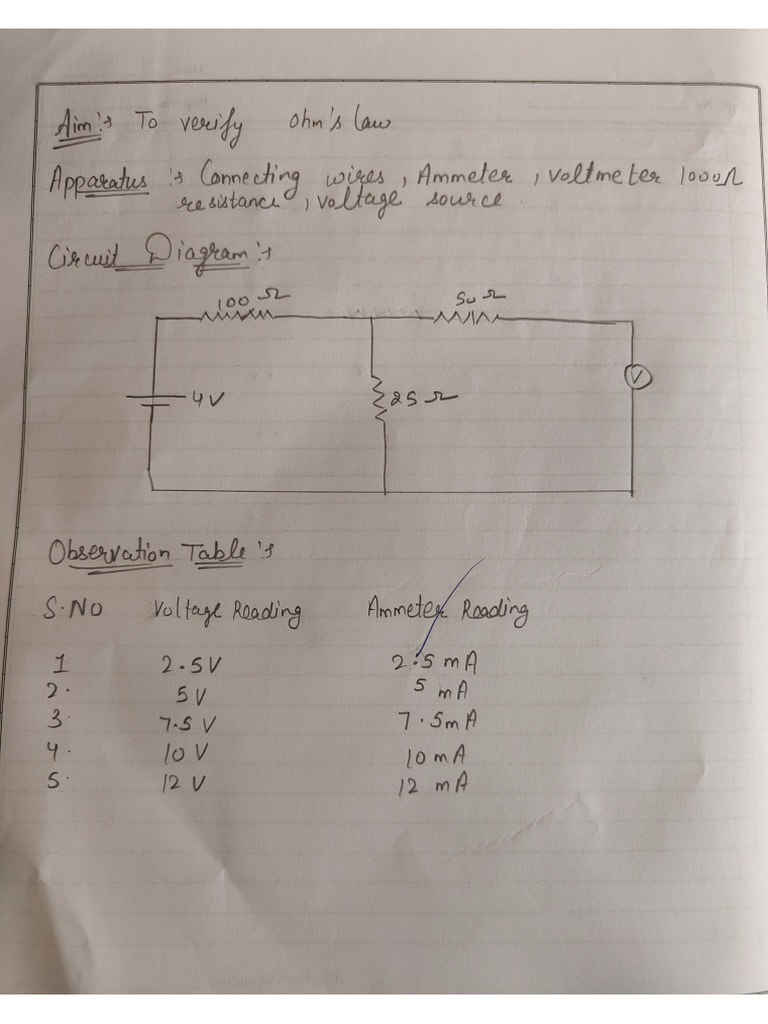 Aim:→ To verify Ohm's law
Apparatus :→ Connecting wires, Ammeter, voltmeter 1000Ω
resistance, voltage source.
Circuit Diagram:→
100 Ω
50 Ω
4V
25 Ω
V
Observation Table:→
S.NO Voltage Reading Ammeter Reading
1 2.5V 2.5 mA
2. 5V 5 mA
3. 7.5 V 7.5mA
4. 10 V 10 mA
5. 12 V 12 mA